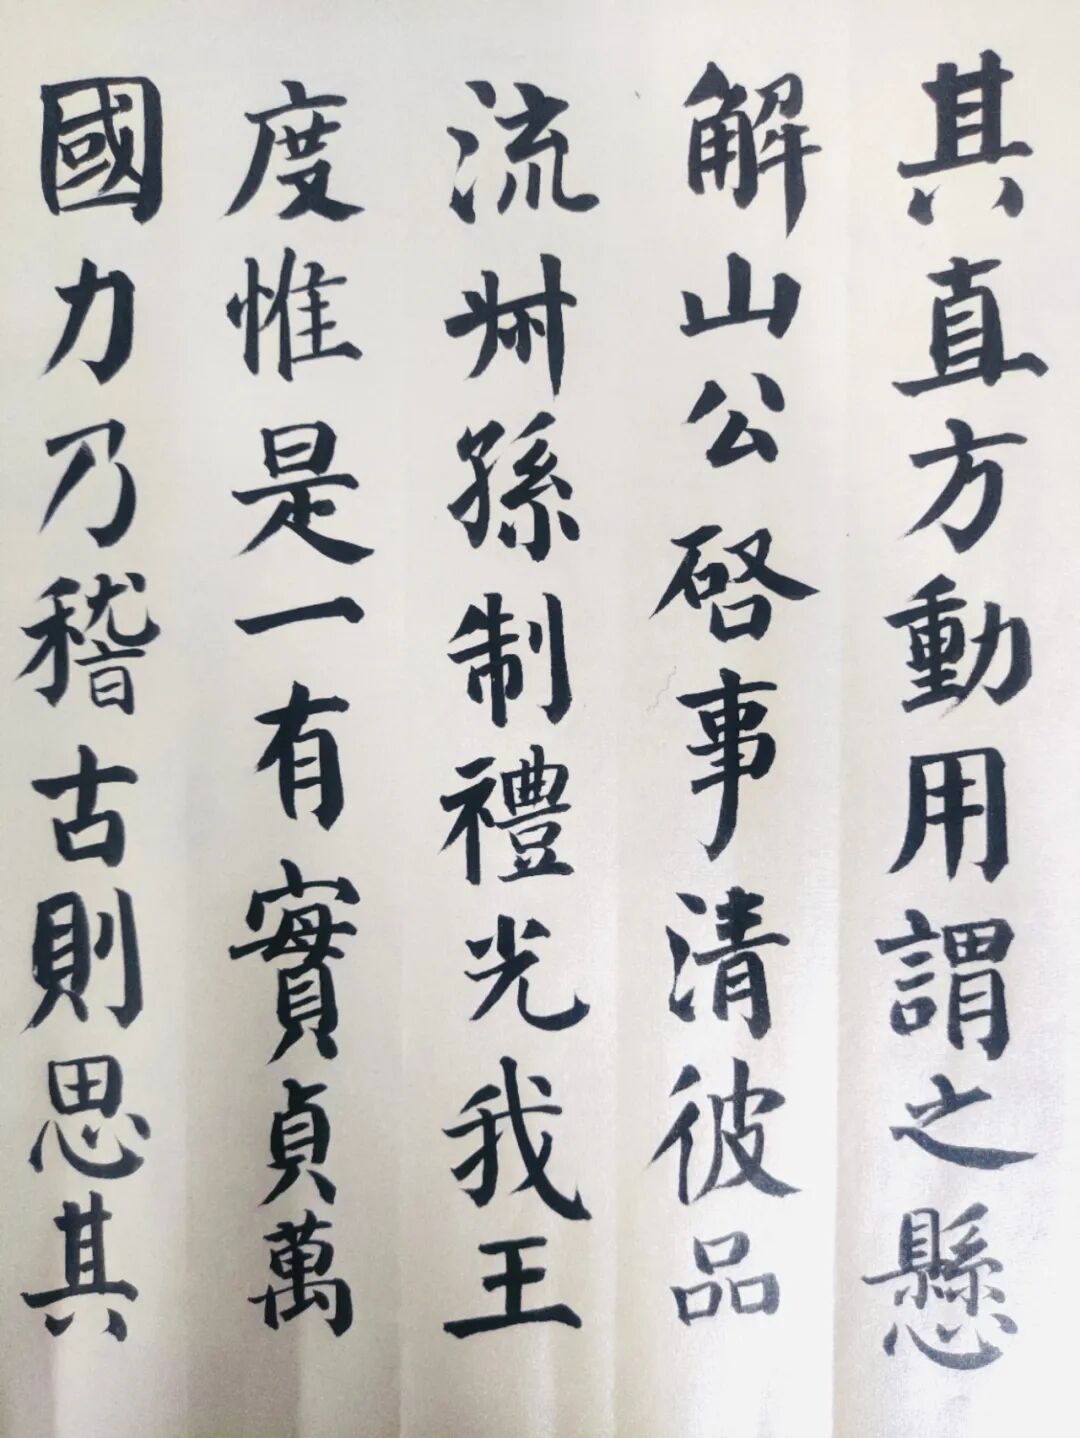 其直方動用謂之懸
解山公啓事清彼品
流卅孫制禮光我王
度惟是一有實貞萬
國力乃稽古則思其